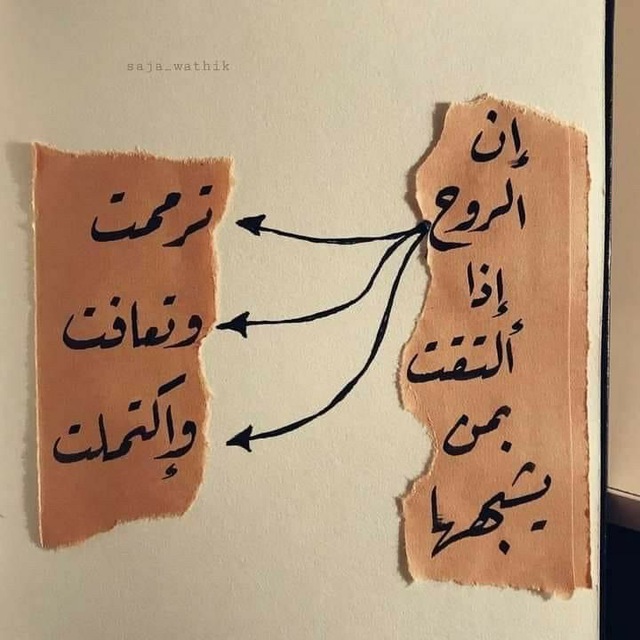 saja_wathik
إن
الروح
إذا
ألتقت
بمن
يشبهها
ترممت
وتعافت
وإكتملت